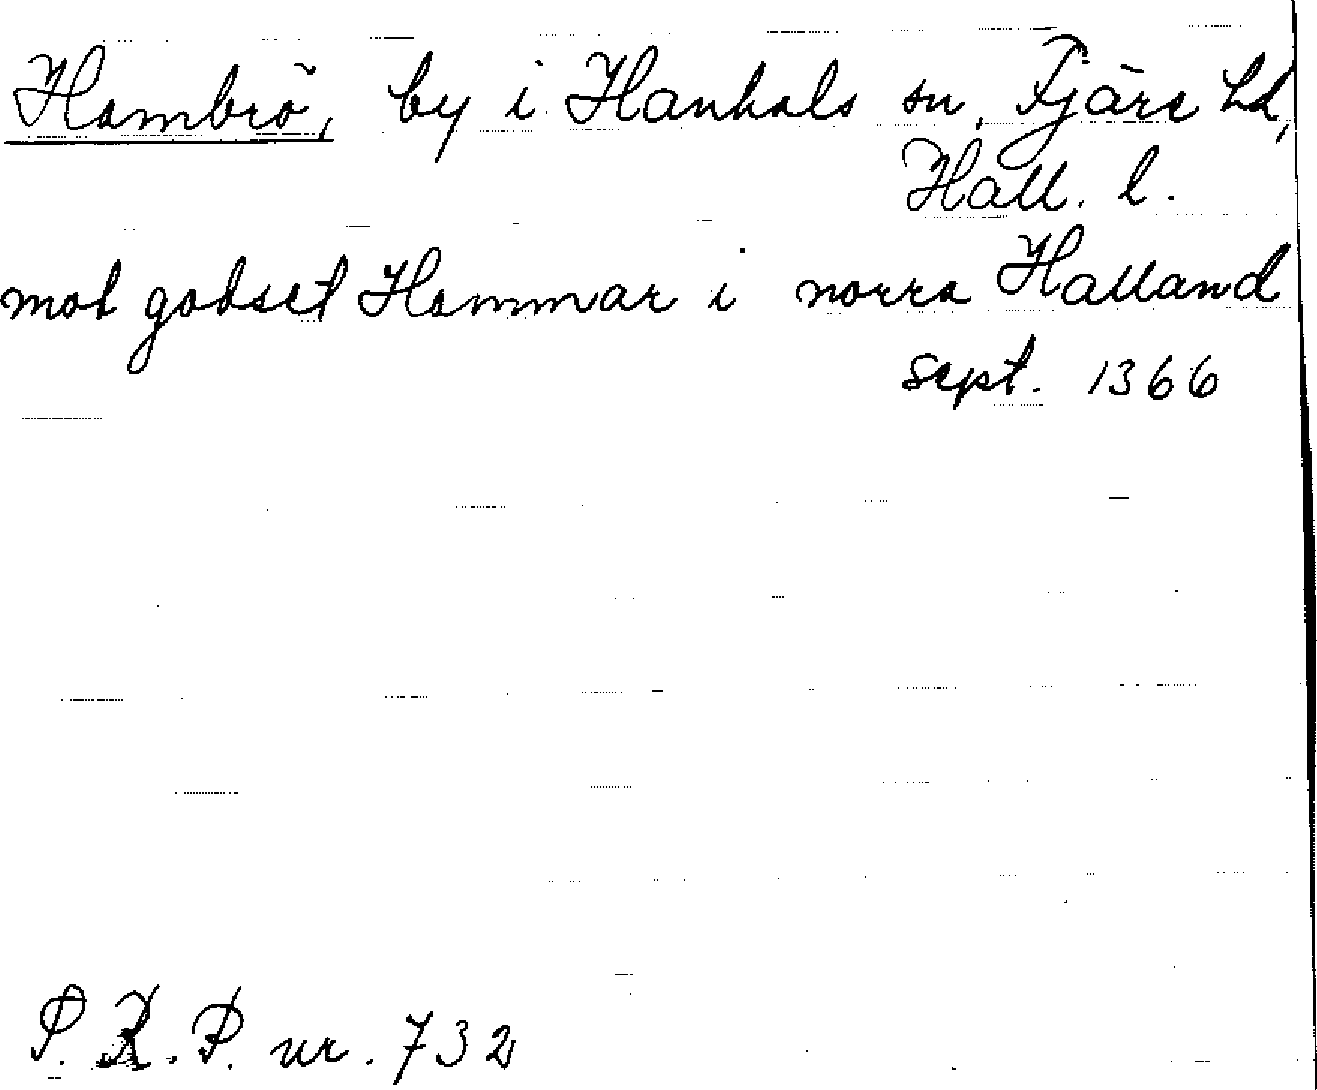 Hambrö, by i Hanhals sn, Fjäre hd,
Hall. l.
mot godset Hammar i norra Halland
sept. 1366
P. R. P. nr. 732